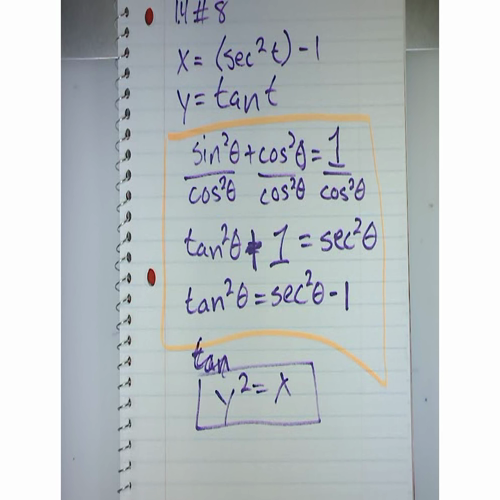 1.4 # 8
x = (sec²t) - 1
y = tan t
sin²θ/cos²θ + cos²θ/cos²θ = 1/cos²θ
tan²θ + 1 = sec²θ
tan²θ = sec²θ - 1
tan
y² = x